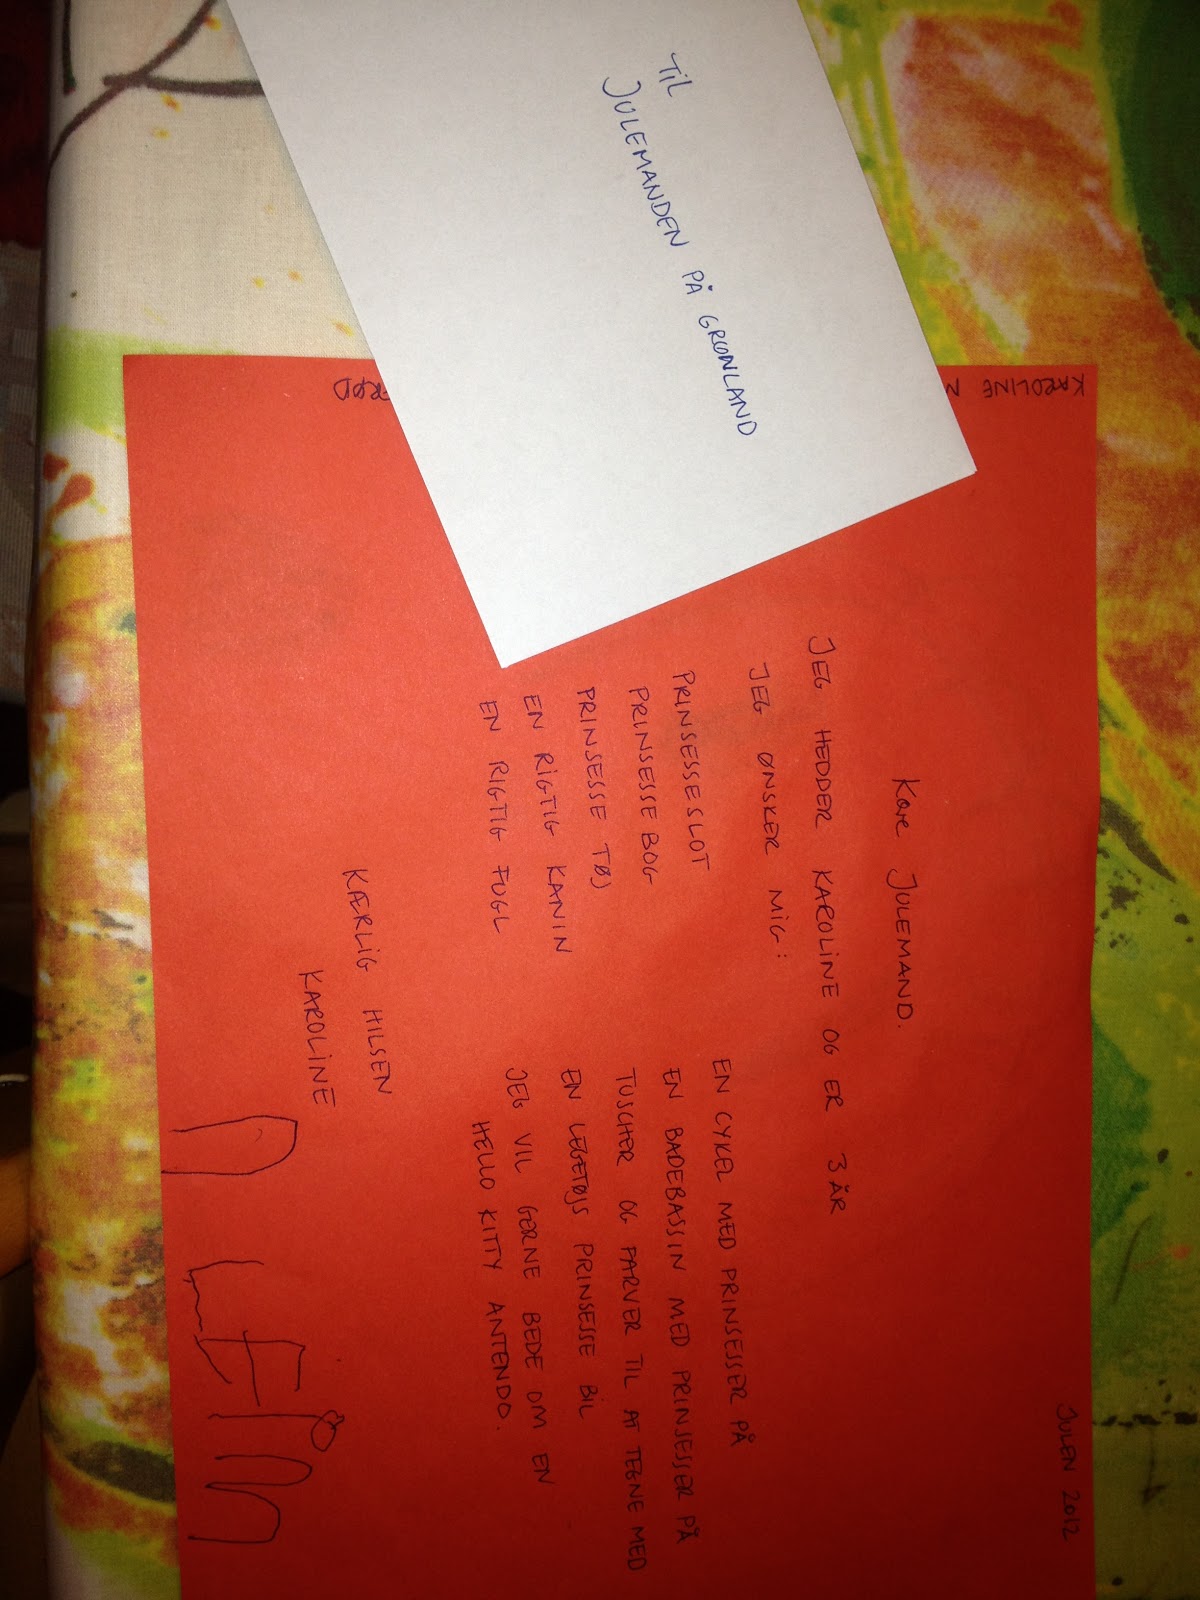 TIL
JULEMANDEN PÅ GRØNLAND
KAROLINE
JULEN 2012
Kære JULEMAND.
JEG HEDDER KAROLINE OG ER 3 ÅR
JEG ØNSKER MIG:
PRINSESSESLOT
PRINSESSEBOG
PRINSESSE TØJ
EN RIGTIG KANIN
EN RIGTIG FUGL
EN CYKEL MED PRINSESSER PÅ
EN BADEBASSIN MED PRINSESSER PÅ
TUSCHER OG FARVER TIL AT TEGNE MED
EN LEGETØJS PRINSESSE BIL
JEG VIL GERNE BEDE OM EN
HELLO KITTY ANTENDO.
KÆRLIG HILSEN
KAROLINE